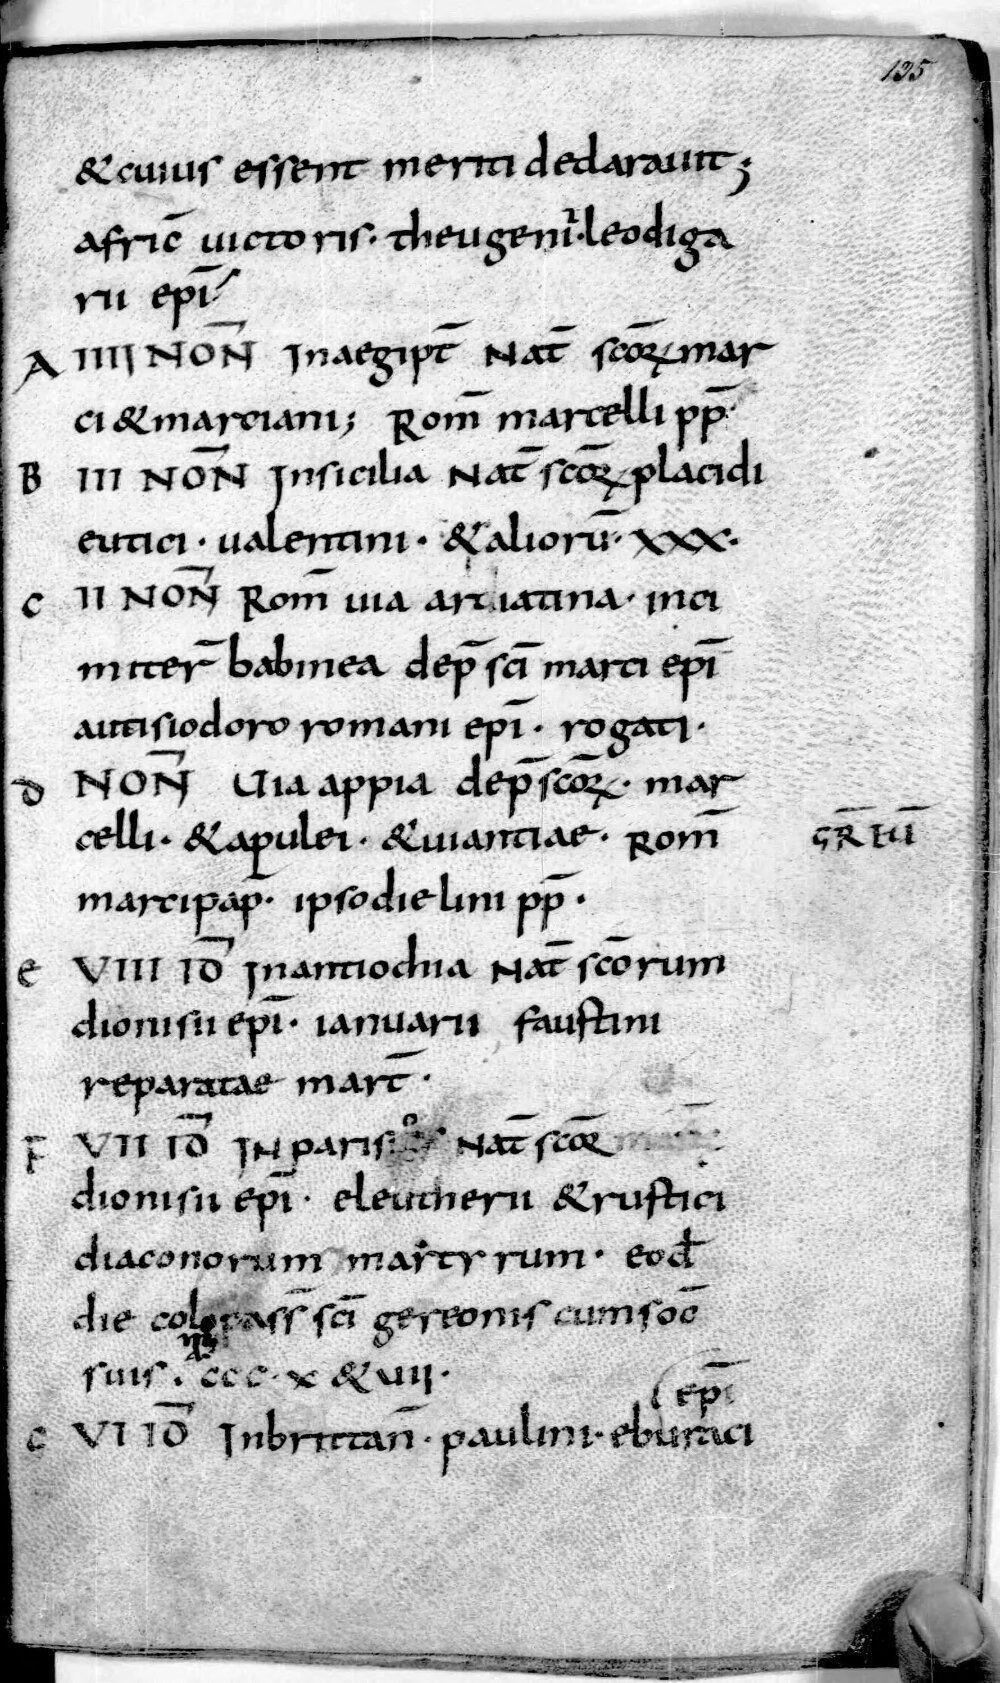 125
&cuius essent meriti declarauit;
afric̄ uictoris· theugenii·leodiga
rii epī
A IIII NON̄ Inaegipt̄ Nat̄ scōꝝ mar
ci &marciani; Rom̄ marcelli pp̄·
B III NON̄ Insicilia Nat̄ scōꝝ placidi
eutici· ualentini· &aliorū· xxx·
c II NON̄ Rom̄ uia ardiatina· inci
miter̄ babinea dep̄ scī marci epī
autisiodoro romani epī· rogati·
d NON̄ Uia appia dep̄ scōꝝ· mar
celli· &apulei· &uiantiae· Rom̄
marci pap̄· ipsodie lini pp̄·
e VIII ID̄ Inantiochia Nat̄ scōrum
dionisii epī· ianuarii faustini
reparatae mart̄·
F VII ID̄ IN paris Nat̄ scōꝝ
dionisii epī· eleutherii &rustici
diaconorum martyrum· eod̄
die col pass̄ scī gereonis cumsoc̄
suis· ccc·x &uii·
epī
c VI ID̄ Inbrittan̄· paulini· eburaci